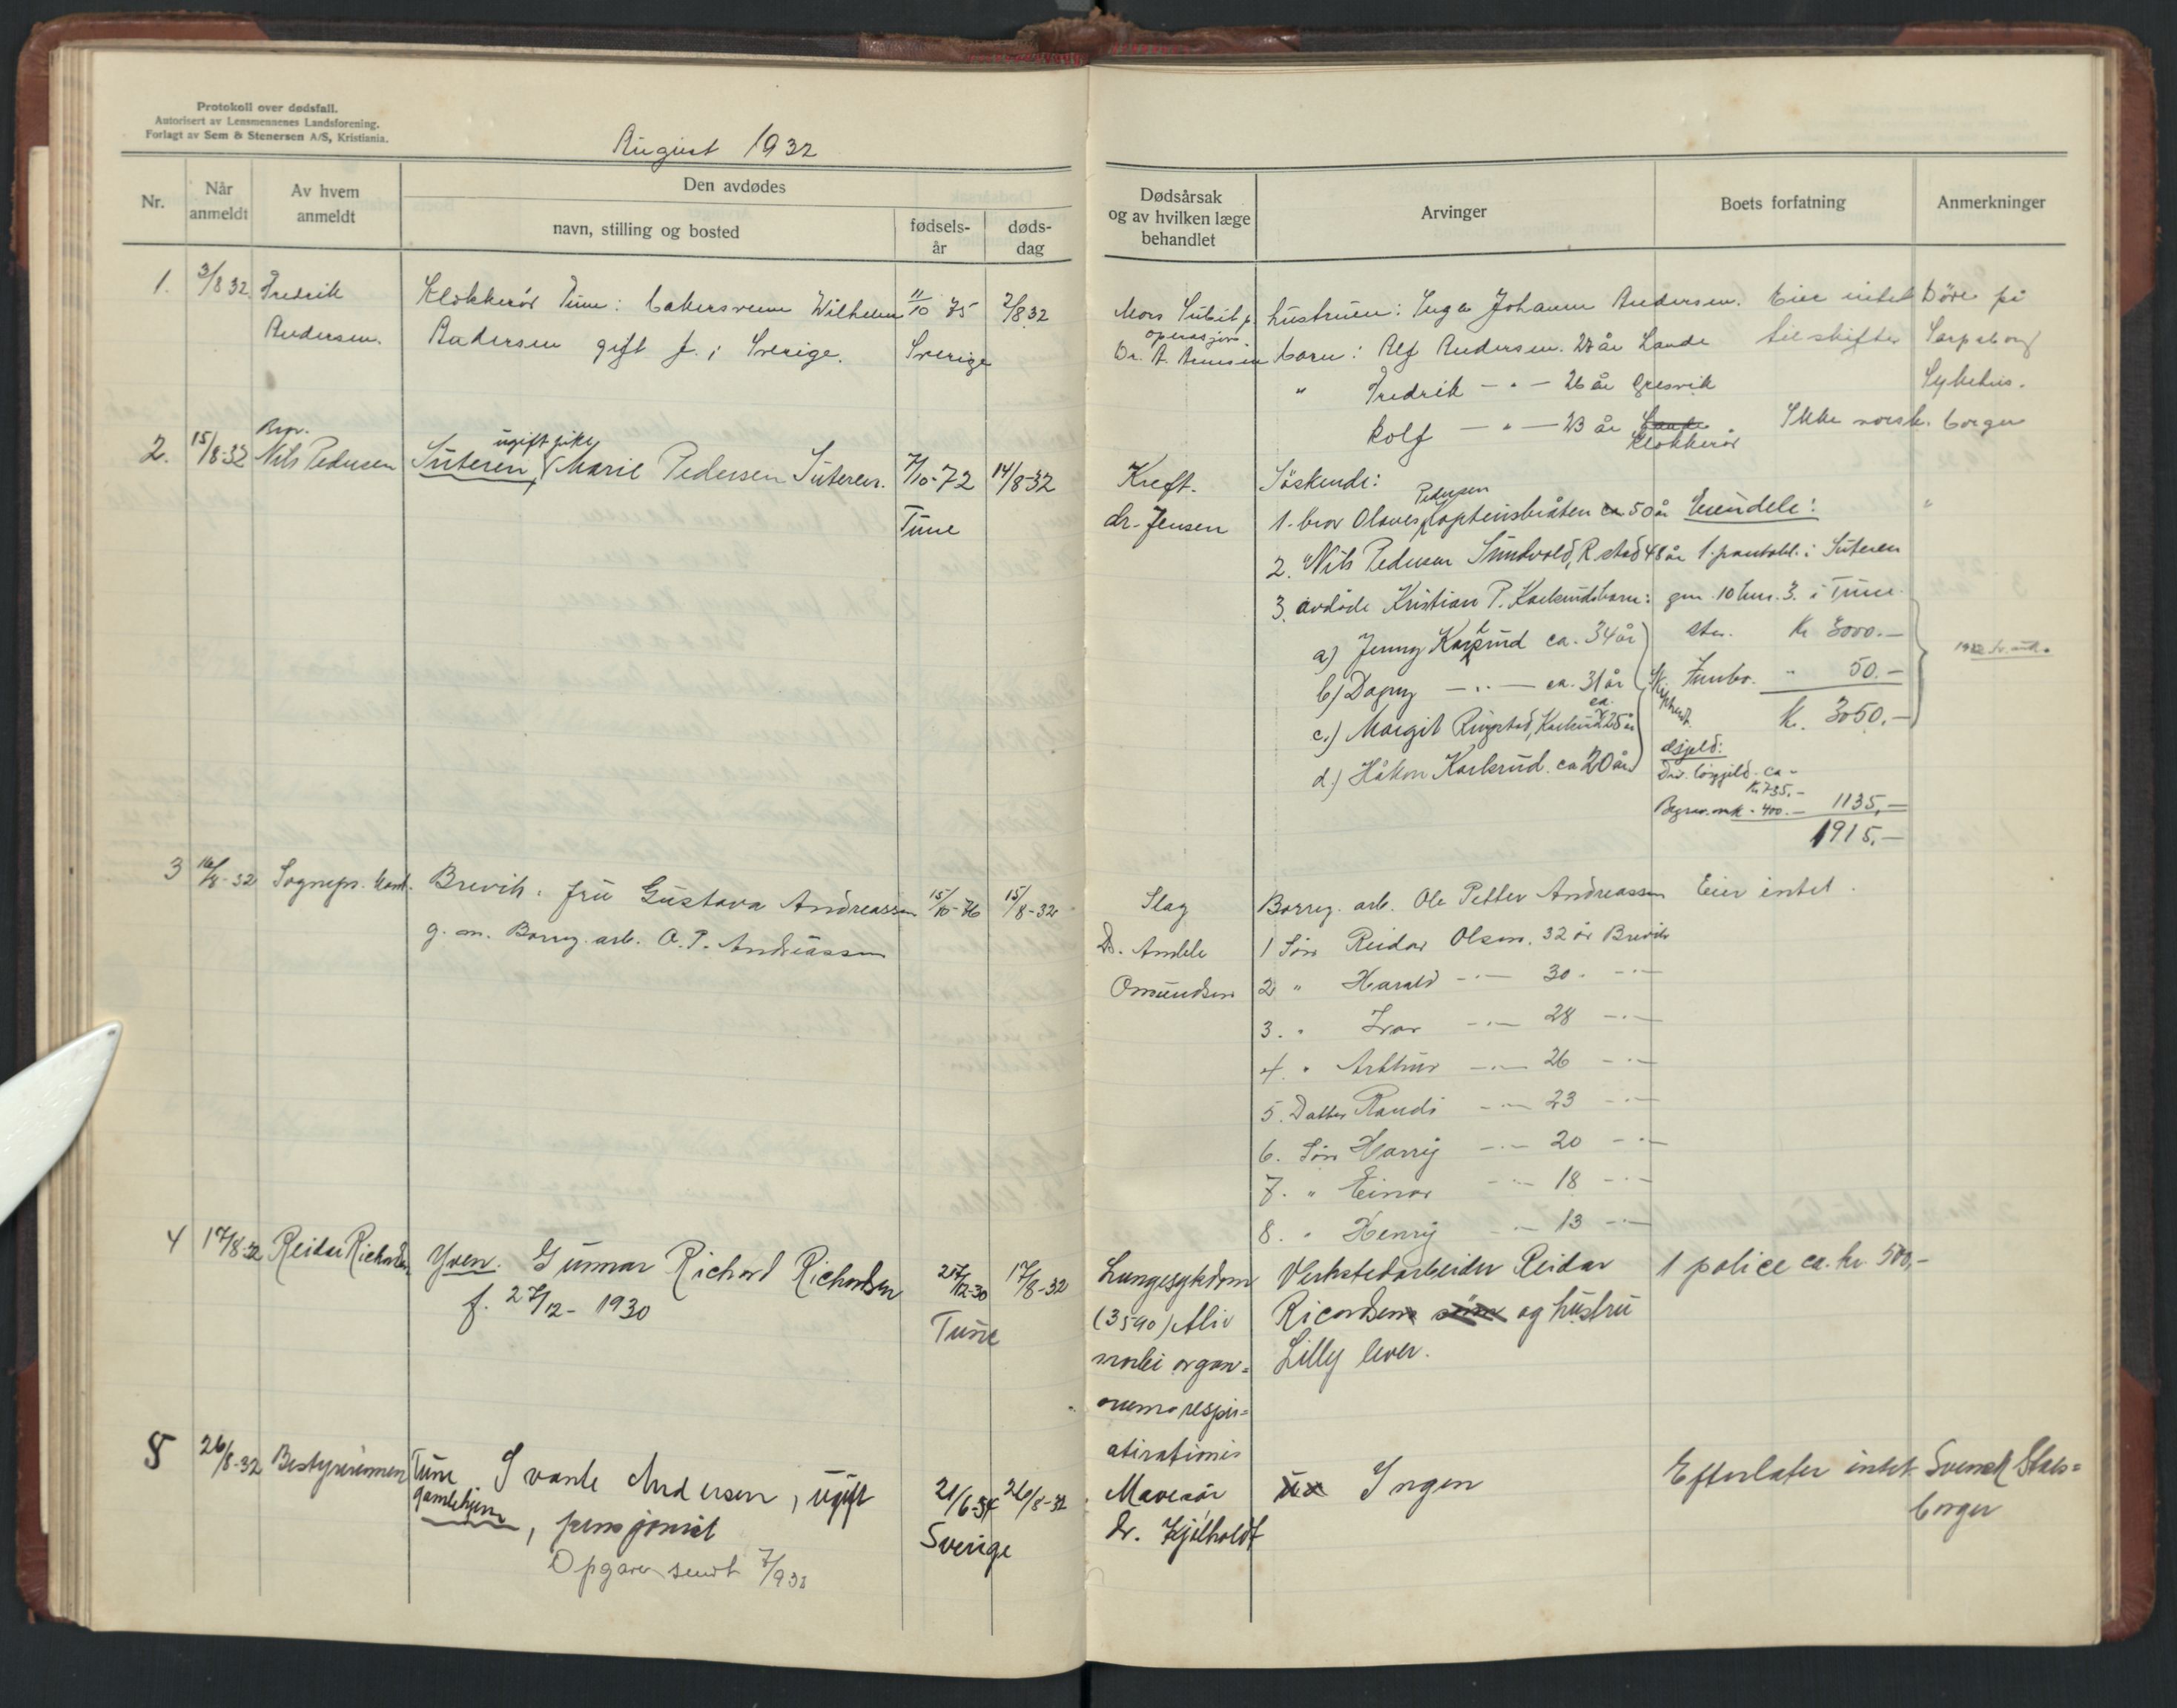 Protokoll over dødsfall.
Autorisert av Lensmennenes Landsforening.
Forlagt av Sem & Stenersen A/S, Kristiania.
August 1932
Nr.
Når anmeldt
Av hvem anmeldt
Den avdødes
navn, stilling og bosted
fødsels-år
døds-dag
Dødsårsak og av hvilken læge behandlet
Arvinger
Boets forfatning
Anmerkninger
1. 3/8 32 Fredrik Klokkerör Tune: bakersvenn Wilhelm 11/10 75 2/8 32
Andersen. Andersen gift f. i Sverige. Sverige
Mors Subit p. operasjon.
Dr. A. Arnesen
hustruen: Inga Johanne Andersen.
barn: Alf Andersen. 28 år Lande
" Fredrik — " — 26 år Gresvik
Rolf — " — 23 år Lande Klokkerör
Eier intet
til skifter
Döde på
Sarpsborg
Sykehus.
Ikke norsk borger
2. 15/8-32 Bror. Nils Pedersen Suteren ugift pike Marie Pedersen Suteren. 7/10-72 14/8-32
Tune
Kreft.
dr. Jensen
Söskende:
1. bror Olaves Pedersen Kapteinsbråten ca 50 år
2. " Nils Pedersen Sundvold, R.stad 48 år
3. avdöde Kristian P. Karlsruds barn:
a) Jenny Karlsrud ca. 34 år
b) Dagny — " — ca. 31 år
c.) Margit Ringstad, Karlsrud ca. 25 år
d.) Håkon Karlsrud. ca 20 år
Eiendele:
1. pantobl. i Suteren
gnr. 10 bnr. 3. i Tune
stor. Kr 3000.—
Innbo. " 50.—
K. 3050.—
Gjeld:
Div. lösgjeld ca -
Kr. 735.-
Begrav. omk - 400.— 1135,—
1915,—
3 16/8-32 Sogneprs. kont. Brevik. fru Gustava Andreassen 15/10-76 15/8-32
g. m. Borreg. arb. O. P. Andreassen
Slag
Dr. Amdele
Omundsen
Borreg. arb. Ole Petter Andreassen
1 Sön Reidar Olsen. 32 år Brevik
2 " Harald -"- 30. -"-
3. " Ivar -"- 28 -"-
4. " Arthur -"- 26 -"-
5. Datter Randi -"- 23 -"-
6. Sön Harry -"- 20 -"-
7. " Einar -"- 18 -"-
8. " Henry -"- 13 -"-
Eier intet.
4 17/8-32 Reidar Richardsen Yven. Gunnar Richard Richardsen 27/12-30 17/8-32
f. 27/12 - 1930
Tune
Lungesykdom
(3590) Alii
morbi organ=
orum respir=
atirationis
Verkstedarbeider Reidar
Ricardsen og hustru
Lilly lever.
1 police ca. kr 500,-
5 26/8-32 Bestyrerinnen Tune gamlehjem Svante Andersen, ugift 21/6-54 26/8-32
, pensjonist
Sverige
Opgave sendt 7/9 32
Mavesår
dr. Kjölholdt
Ingen
Efterlater intet.
Svensk Stats=
borger